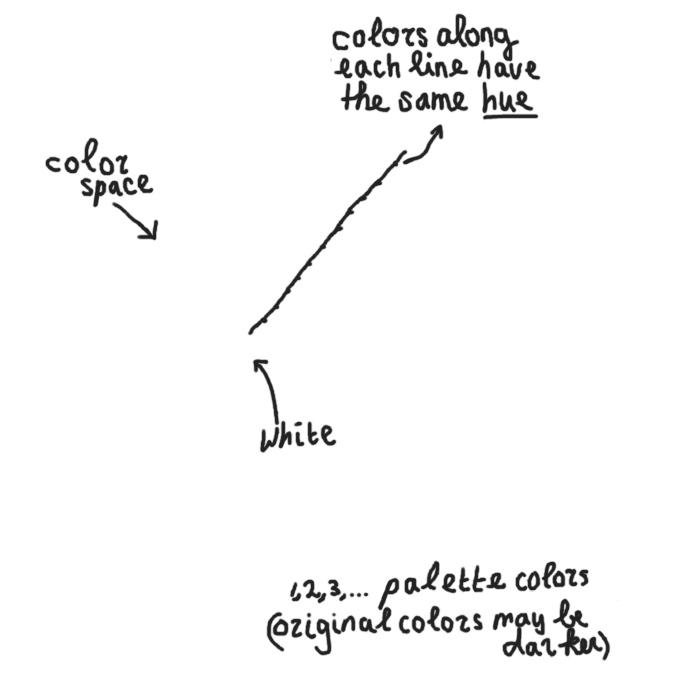 colors along
each line have
the same hue
color
space
white
1,2,3,... palette colors
(original colors may be
darker)